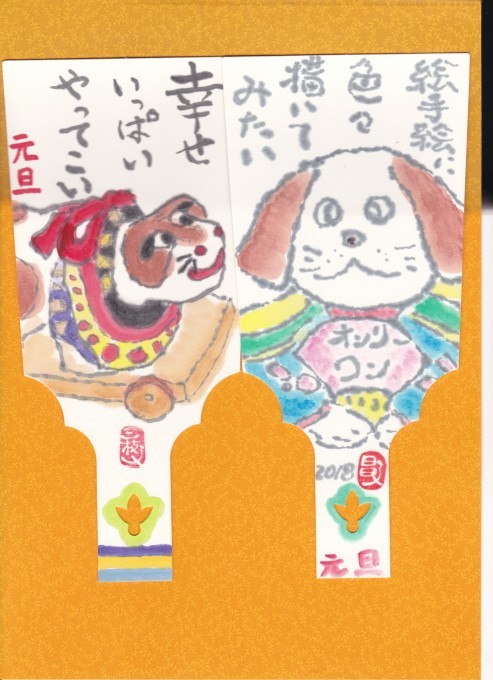 絵手絵に
色々
描いて
みたい
オンリー
ワン
2018
元旦
幸せ
いっぱい
やってこい
元旦